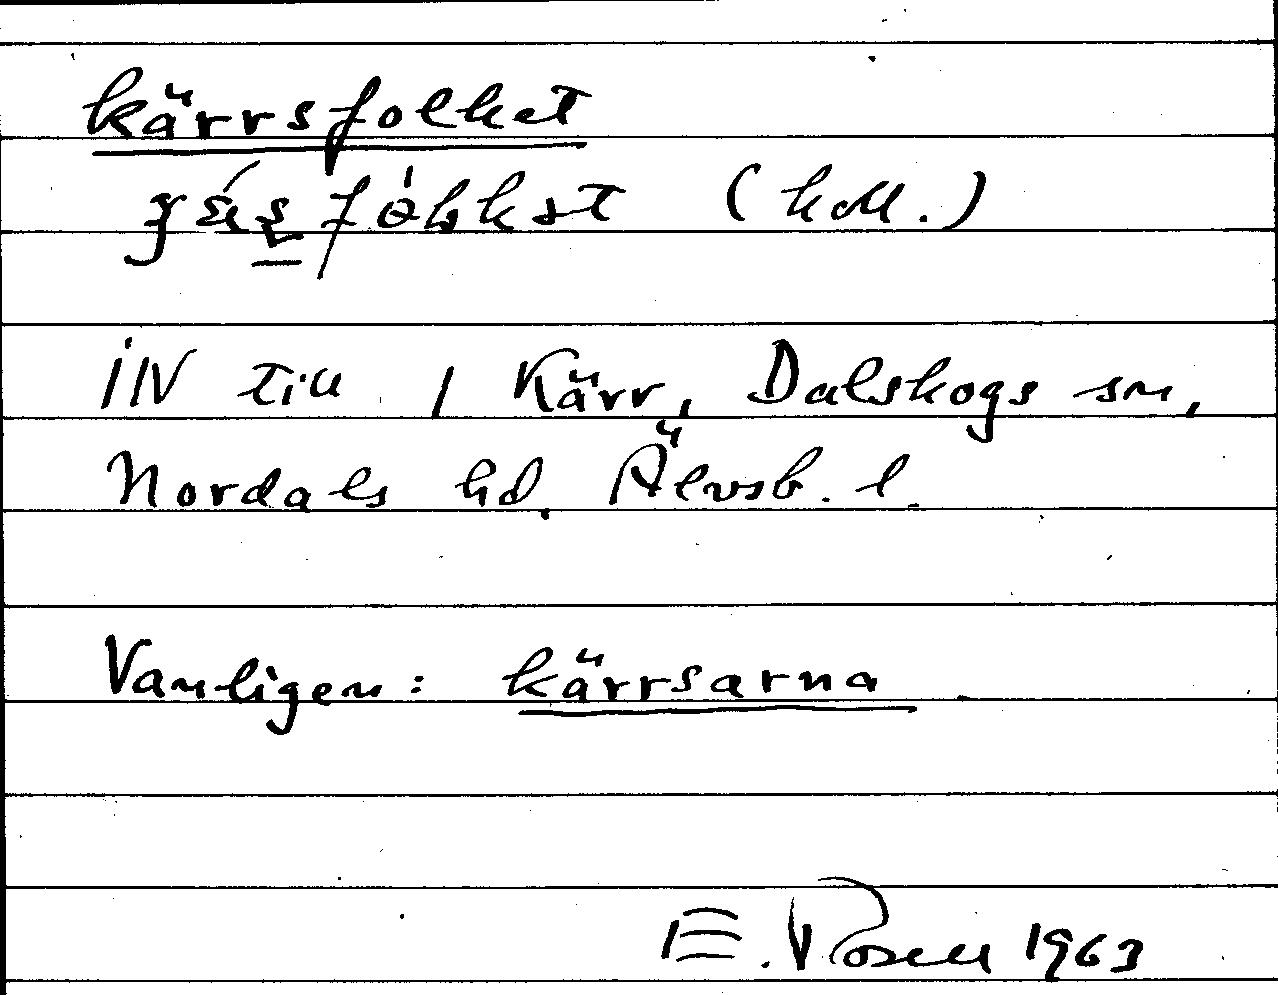 kärrsfolket
(koll.)
inv till 1 Kärr, Dalskogs sn,
Nordals hd. Älvsb. l.
Vanligen: kärrsarna
E. Rosell 1963